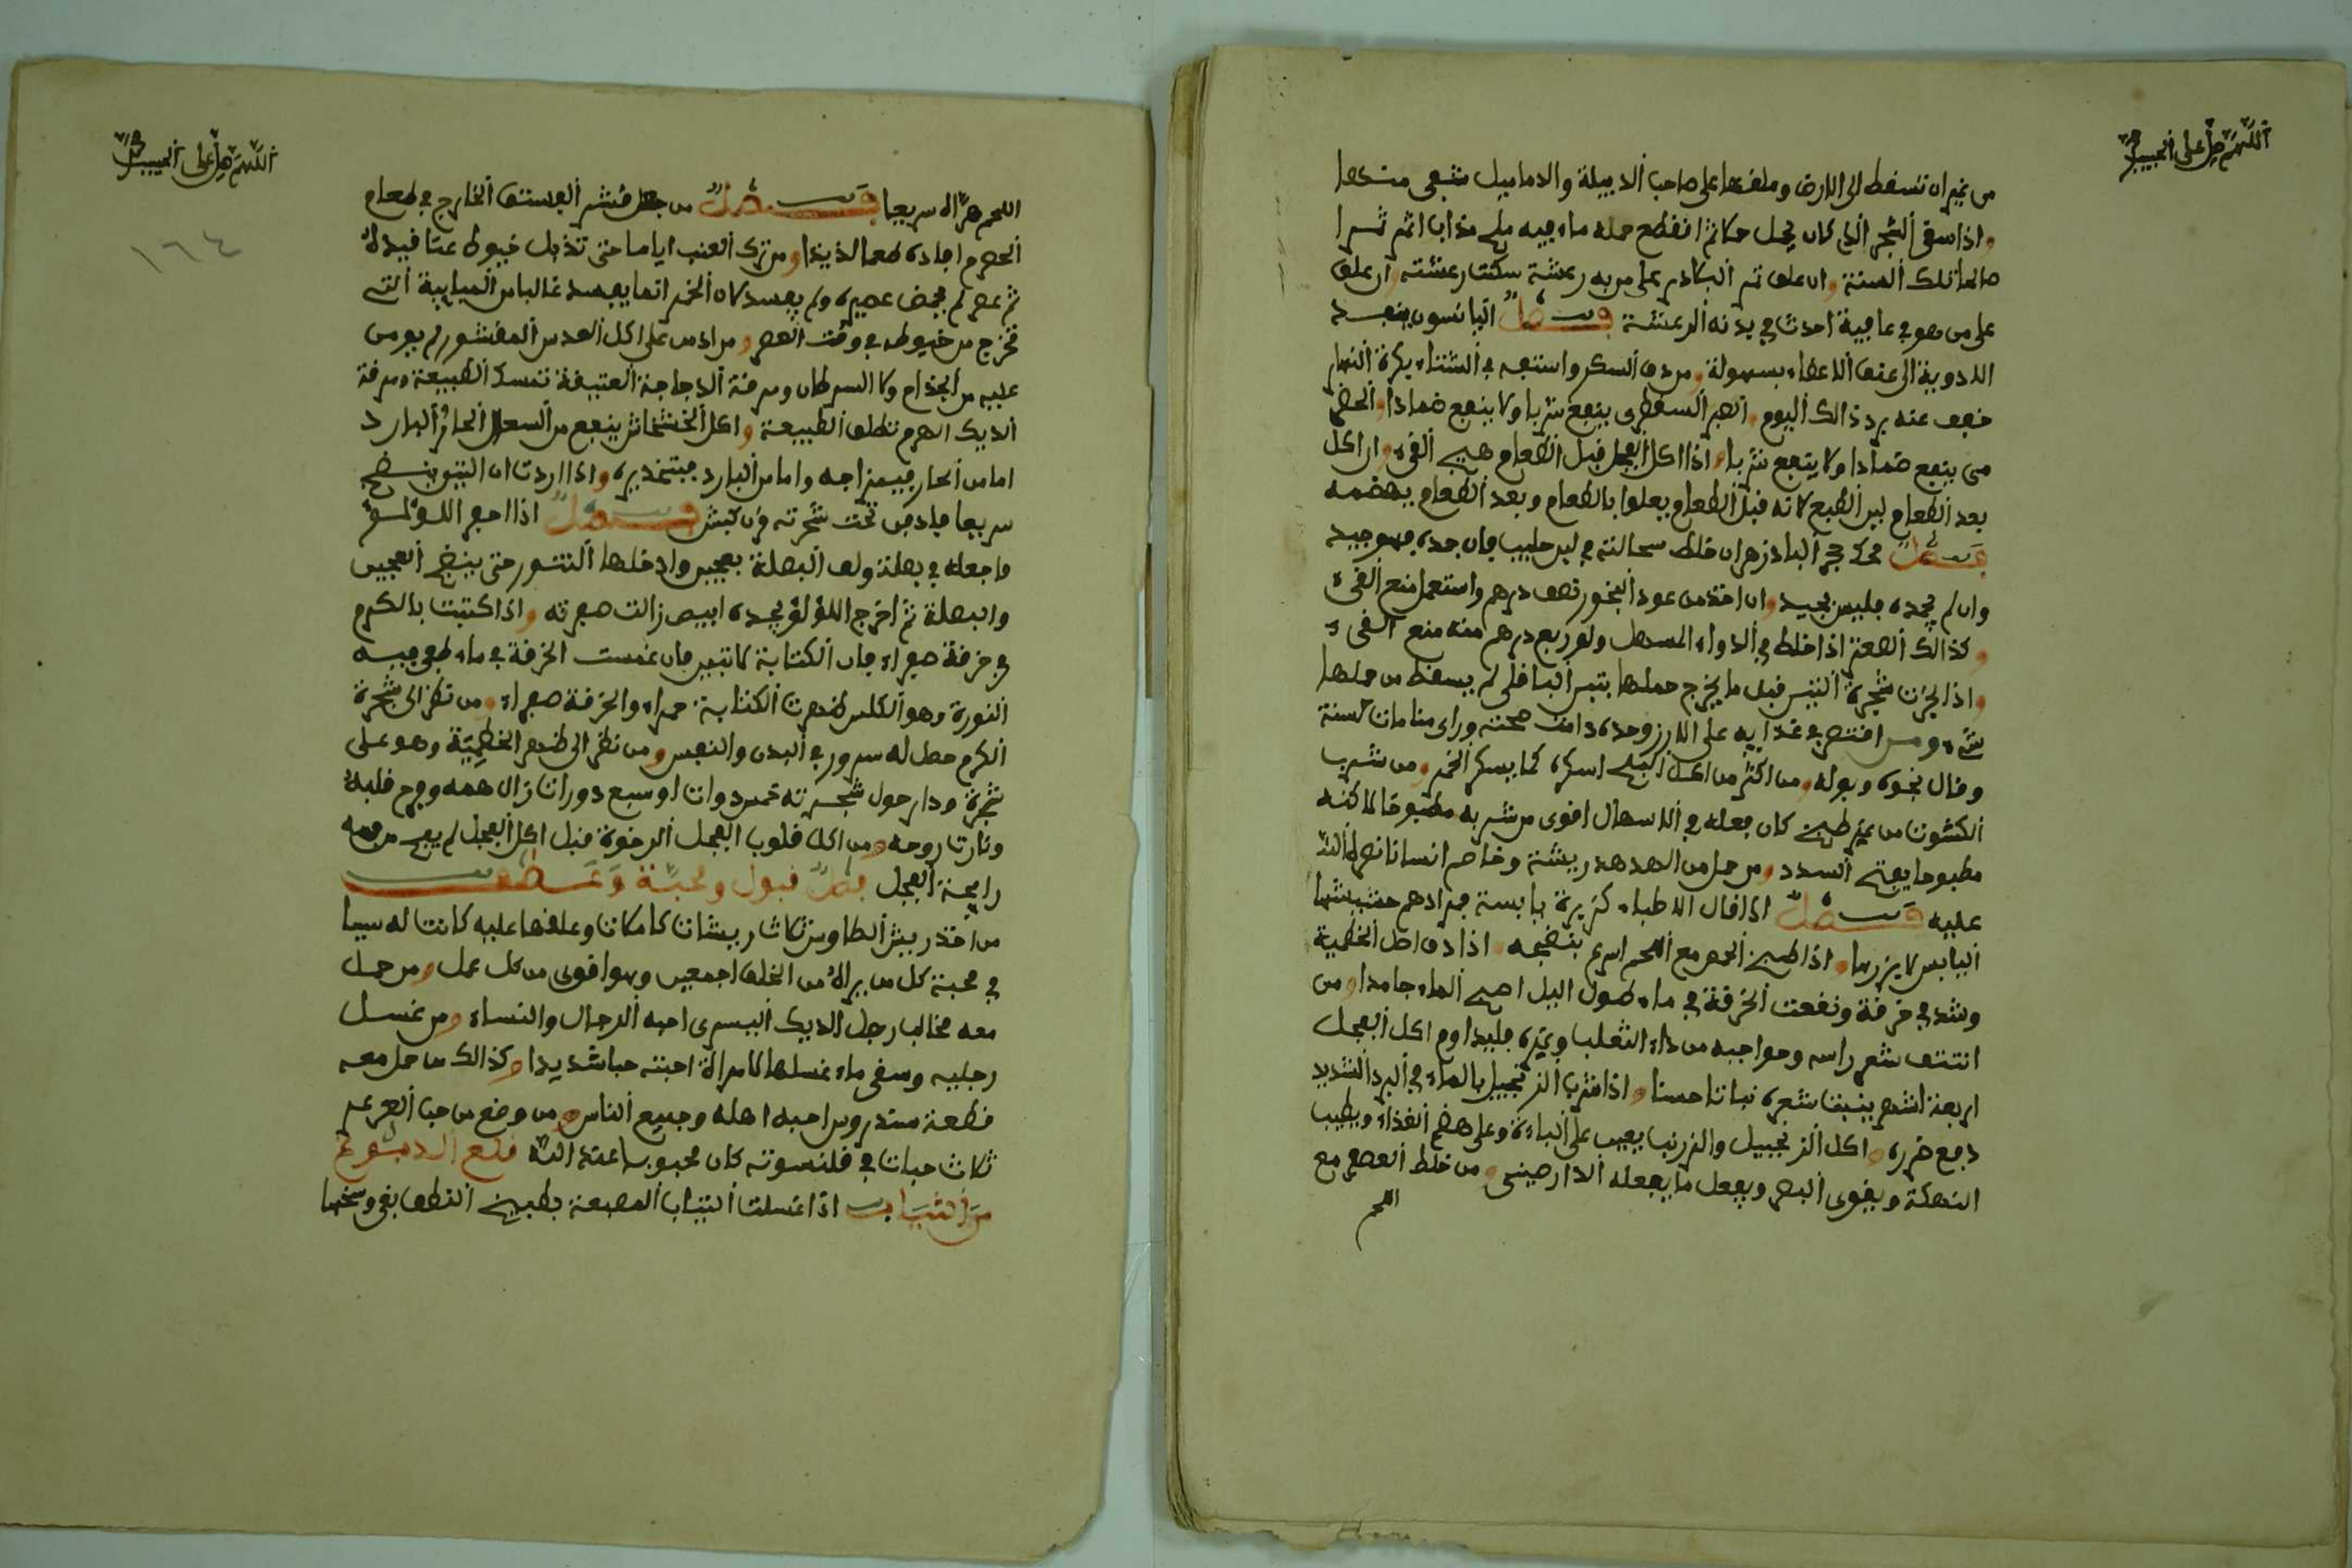 اللهم صل على الحبيب محمد
من غير ان تسقط الى الارض وعلقها على صاحب الدبيلة والدماميل شفى منها
واذا سقى الشجر الذي كان يحمل حامضا انقطع حمله ماء فيه ملح مذاب اثمر ثمرا
صالحا تلك السنة وان علق على من به رعشة سكنت رعشته وان علق
على من هو في عافية احدث في بدنه الرعشة فصل اليانسون ينفد
الادوية الى عمق الاعضاء بسهولة ومن دق السكر واستفه في الشتاء بكرة النهار
خفف عنه برد ذالك اليوم والصبر السقطرى ينفع شربا ولا ينفع ضمادا والحضض
ينفع ضمادا ولا ينفع شربا واذا اكل الفجل قبل الطعام هيج القيء وان اكل
بعد الطعام لين الطبع لانه قبل الطعام يعلوا بالطعام وبعد الطعام يهضمه
فصل محك حجر البادزهر ان خلط سحالته في لبن حليب فان جمده فهو جيد
وان لم يجمده فليس بجيد وان اخذ من عود البخور نصف درهم واستعمل منع القيء
وكذالك الصعتر اذا خلط في الدواء المسهل ولو ربع درهم منه منع القيء
واذا بخرت شجرة التين قبل ما يخرج حملها بتبن الباقلى لم يسقط من حملها
شيء ومن اقتصر في غذايه على الارز وحده دامت صحته وراى منامات حسنة
وقال نجوه وبوله ومن اكثر من اكل البلح اسكره كما يسكر الخمر ومن شرب
الكشوت من غير طبخ كان فعله في الاسهال اقوى من شربه مطبوخا لاكنه
مطبوخا يفتح السدد ومن حمل من الهدهد ريشة وخاصم انسانا نصره الله
عليه فصل اذا قال الاطباء كزبرة يابسة فمرادهم حشيشها
اليابس لا بزرها واذا طبخ الحمص مع اللحم اسرع بنضجه واذا دق اصل الخطمية
وشد في خرقة ونقعت الخرقة في ماء طول اليل اصبح الماء جامدا ومن
انتتف شعر راسه وحواجبه من داء الثعلب وغيره فليداوم اكل الفجل
اربعة اشهر ينبت شعره نباتا حسنا واذا شرب الزنجبيل بالماء في البرد الشديد
دفع ضرره واكل الزنجبيل والزرنب يعين على الباءة وعلى هضم الغذاء ويطيب
النهكة ويقوى البصر ويفعل ما يفعله الدارصيني ومن خلط العصفر مع
اللحم
اللهم صل على الحبيب محمد
١٦٤
اللحم هراه سريعا فصل من جعل قشر الفستق الخارج في طعام
الحصرم افاده طعما لذيذا ومن ترك العنب اياما حتى تذبل خيوط عناقيده
ثم عصره لم يحمض عصيره ولم يفسد لان الخمر انما يفسد غالبا من المياببة التي
تخرج من خيوطه في وقت العصر ومن ادمن على اكل العدس المقشور لم يومن
عليه من الجذام ولا السرطان ومرقة الدجاجة العتيقة تمسك الطبيعة ومرقة
الديك الهرم تطلق الطبيعة واكل الخشخاش ينفع من السعال الحار والبارد
اما من الحار فبمزاجه واما من البارد فبتخديره واذا اردت ان التين ينضج
سريعا فادفن تحت شجرته قرن كبش فصل اذا اصفر اللؤلؤ
فاجعله في بصلة ولف البصلة بعجين وادخلها التنور حتى ينضج العجين
والبصلة ثم اخرج اللؤلؤ تجده ابيض زالت صفرته واذا كتبت بالكركم
في خرقة صفراء فان الكتابة لا تبين فان غمست الخرقة في ماء طفى فيه
النورة وهو الكلس ظهرت الكتابة حمراء والخرقة صفراء ومن نظر الى شجرة
الكرم حصل له سرور في البدن والنفس ومن نظر الى ظهر الخطمية وهو على
شجرة ودار حول شجرته خمس دورات او سبع دورات زال همه وفرح قلبه
وثارت روحه ومن اكل قلوب الفجل الرخوة قبل اكل الفجل لم يفح من فمه
رايحة الفجل فصل قبول ومحبة وعطف
من اخذ ريش الطاوس ثلاث ريشات كاملات وعلقها عليه كانت له سببا
في محبة كل من يراه من الخلق اجمعين وهو اقوى من كل عمل ومن حمل
معه مخالب رجل الديك اليسرى احبه الرجال والنساء ومن غسل
رجليه وسقى ماء غسلها لامراة احبته حبا شديدا وكذالك من حمل معه
قطعة سندروس احبه اهله وجميع الناس ومن وضع من حب العرعر
ثلاث حبات في قلنسوته كان محبوبا عند الله قلع الدبوغ
من الثياب اذا غسلت الثياب المصبغة بطبيخ القطف نقى وسخها